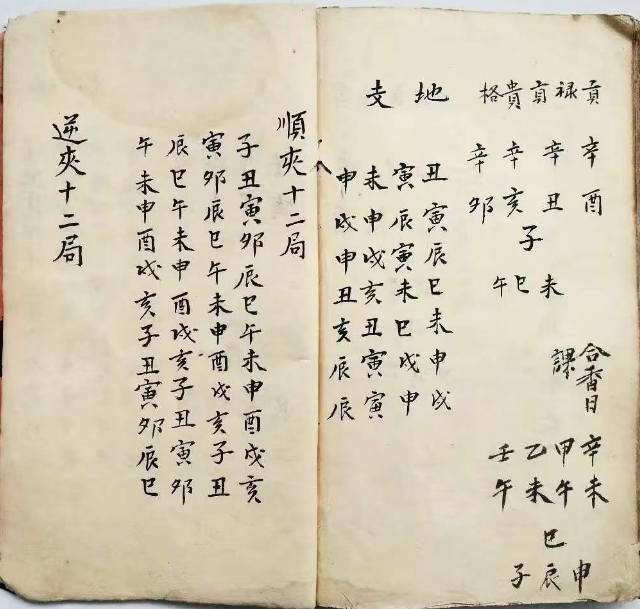 貢禄貢貴格
辛酉
辛丑
辛亥
辛卯
子
未巳午
合香日
課
辛未
甲午
乙未
壬午
巳
申辰子
地支
丑寅辰巳未申戌
寅辰寅未巳戌申
未申戌亥丑寅寅
申戌申丑亥辰辰
順夾十二局
子丑寅卯辰巳午未申酉戌亥
寅卯辰巳午未申酉戌亥子丑
辰巳午未申酉戌亥子丑寅卯
午未申酉戌亥子丑寅卯辰巳
逆夾十二局